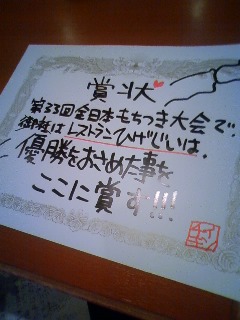 賞状
第33回全日本もちつき大会で、
御殿はレストランひげじいは、
優勝をおさめた事を
ここに賞す!!!